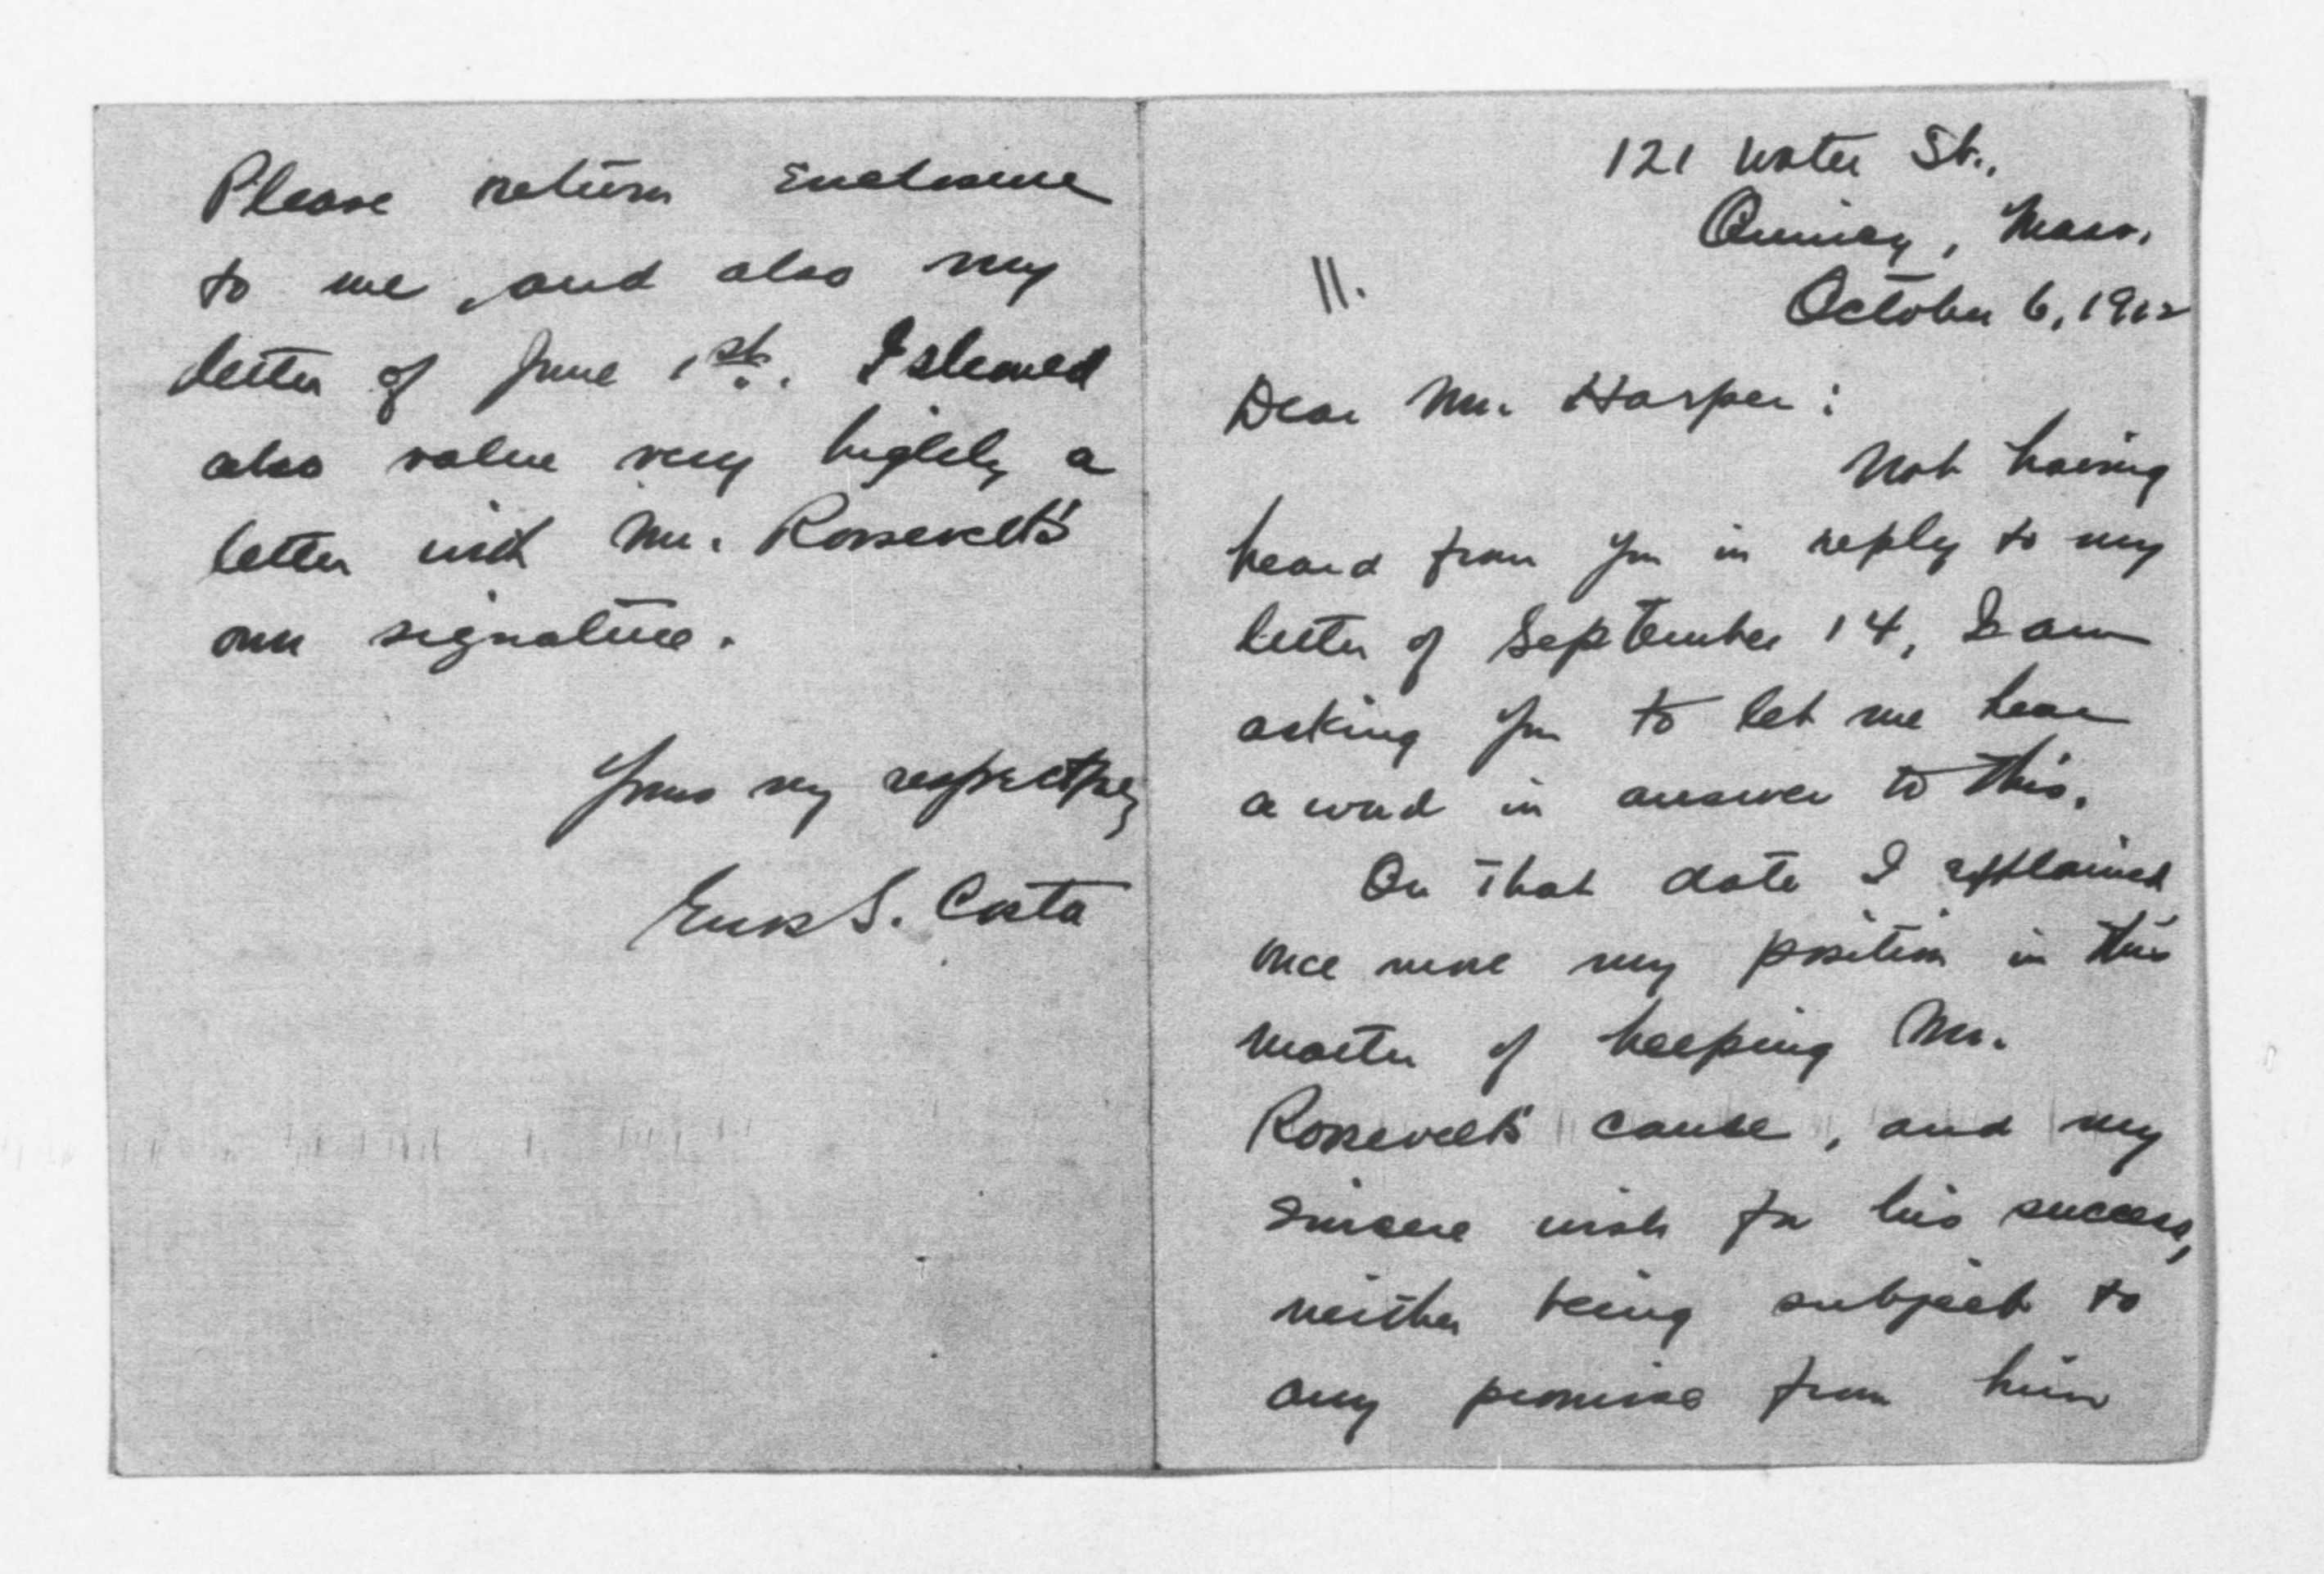 121 Water St.,
Quincy, Mass.
October 6, 1912
11.
Dear Mr. Harper:
Not having
heard from you in reply to my
letter of September 14, I am
asking you to let me hear
a word in answer to this.
On that date I explained
once more my position in this
matter of helping Mr.
Roosevelt's cause, and my
sincere wish for his success,
neither being subject to
any promise from him
Please return enclosure
to me, and also my
letter of June 1st. I should
also value very highly a
letter with Mr. Roosevelt's
own signature.
Yours very respectfully
Enos S. Costa